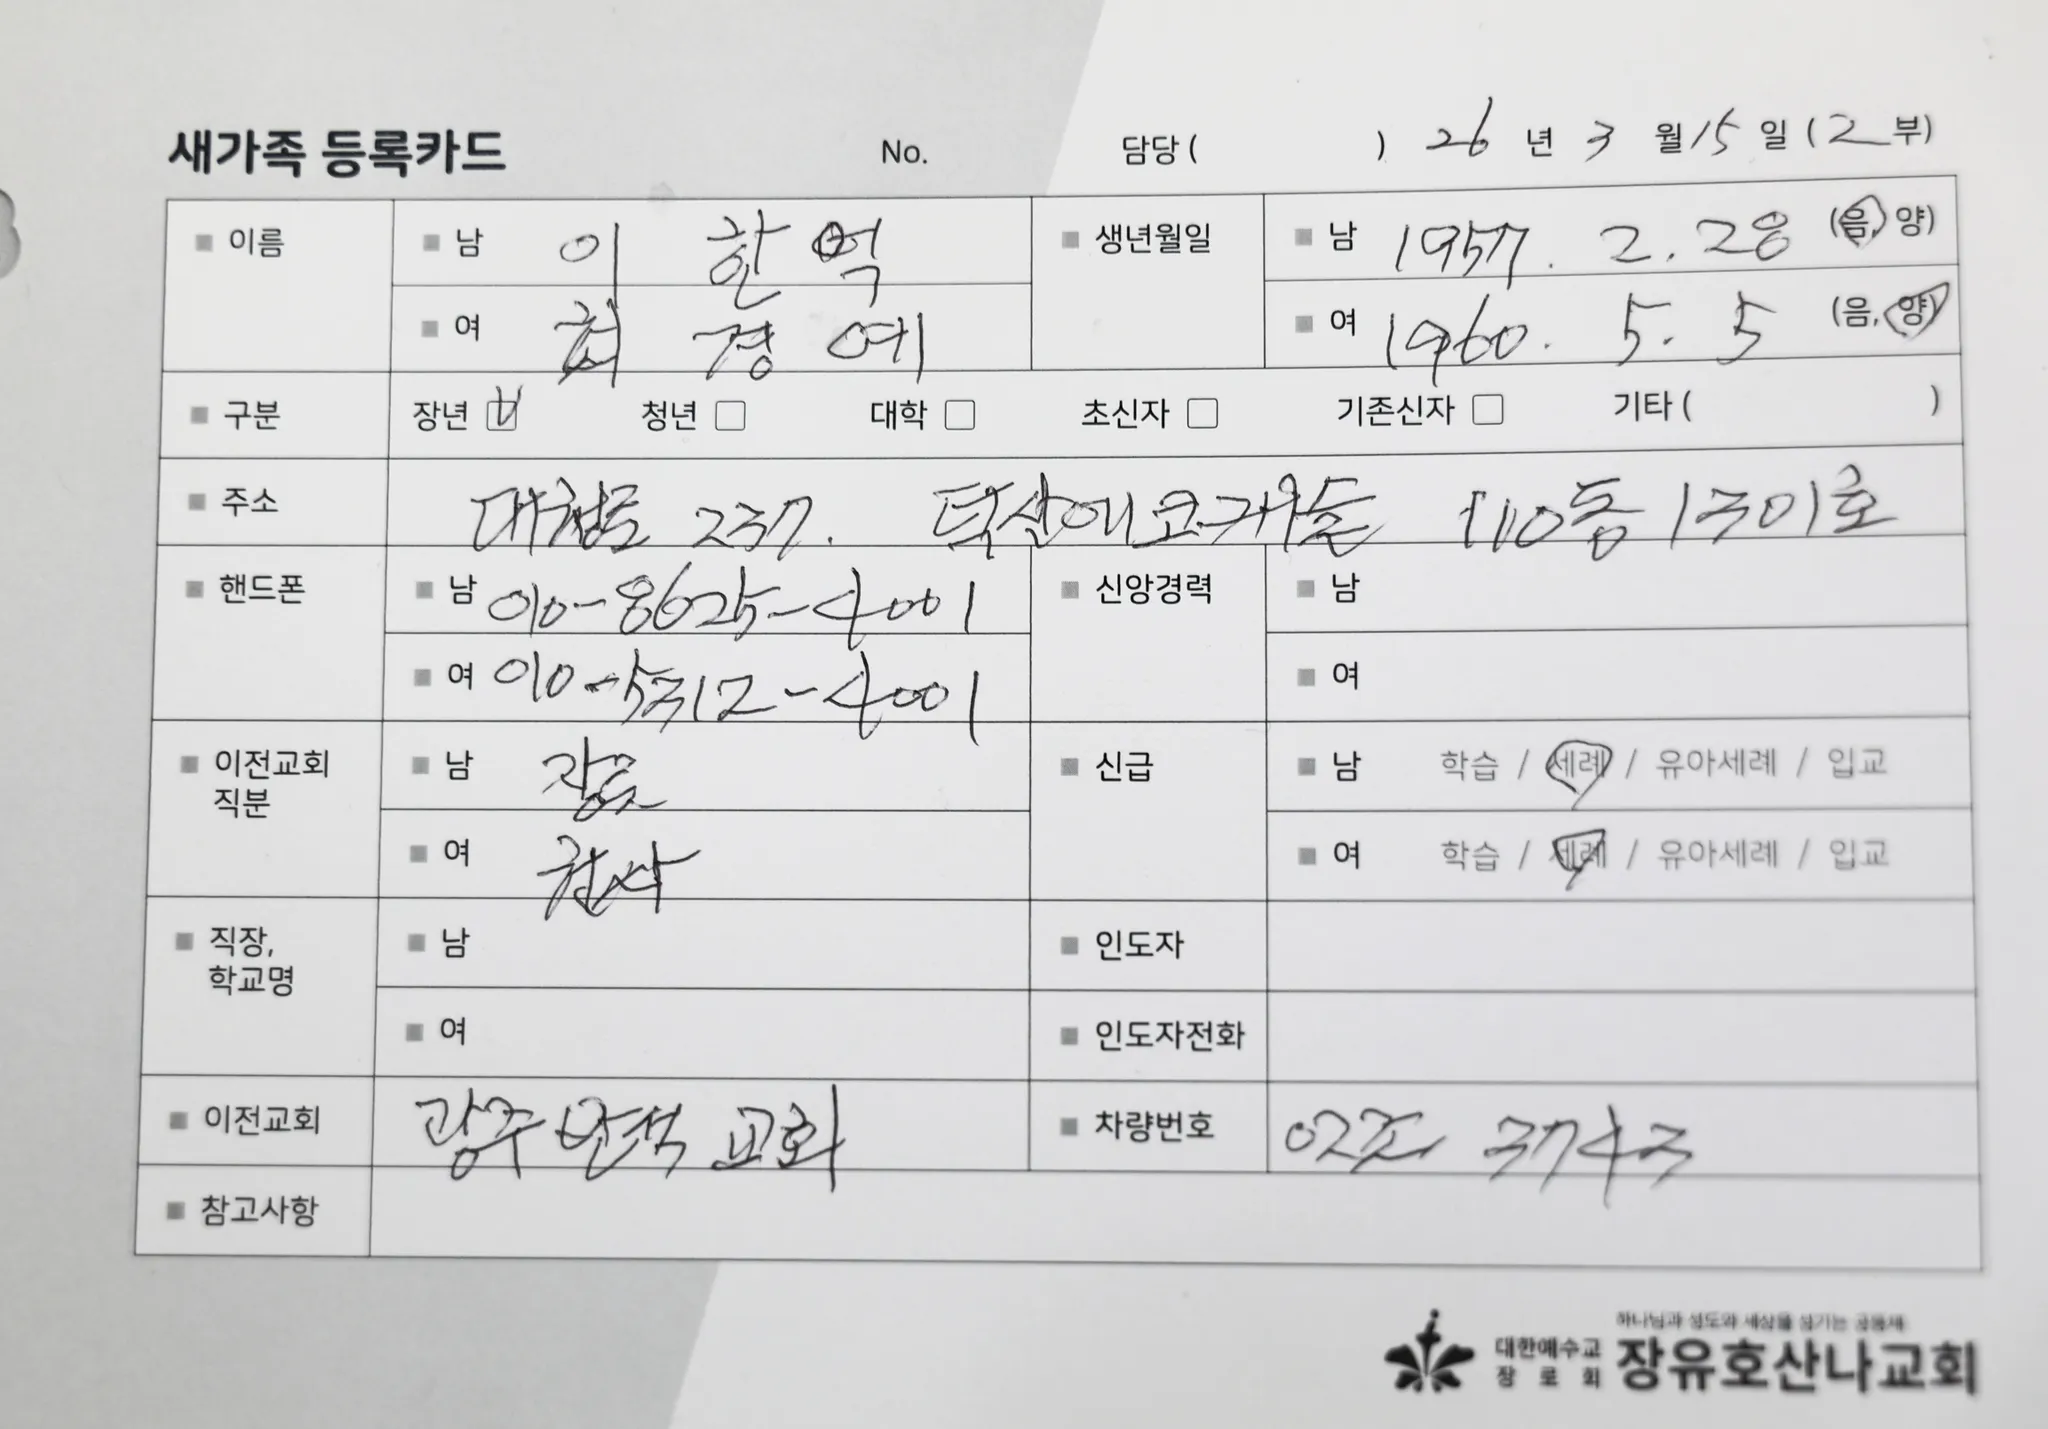 새가족 등록카드 No. 담당 ( ) 26 년 3 월 15 일 (2 부)
이름 남 이 한 억 생년월일 남 1957. 2. 28 (음, 양)
여 경 예 여 1960. 5. 5 (음, 양)
구분 장년 청년 대학 초신자 기존신자 기타 ( )
주소 대청로 237. 덕산에코캐슬 110동 1301호
핸드폰 남 010-8625-4001 신앙경력 남
여 010-5312-4001 여
이전교회 직분 남 장로 신급 남 학습 / 세례 / 유아세례 / 입교
여 권사 여 학습 / 세례 / 유아세례 / 입교
직장, 학교명 남 인도자
여 인도자전화
이전교회 광주 반석 교회 차량번호 02조 3743
참고사항
하나님과 성도와 세상을 섬기는 공동체
대한예수교 장로회 장유호산나교회